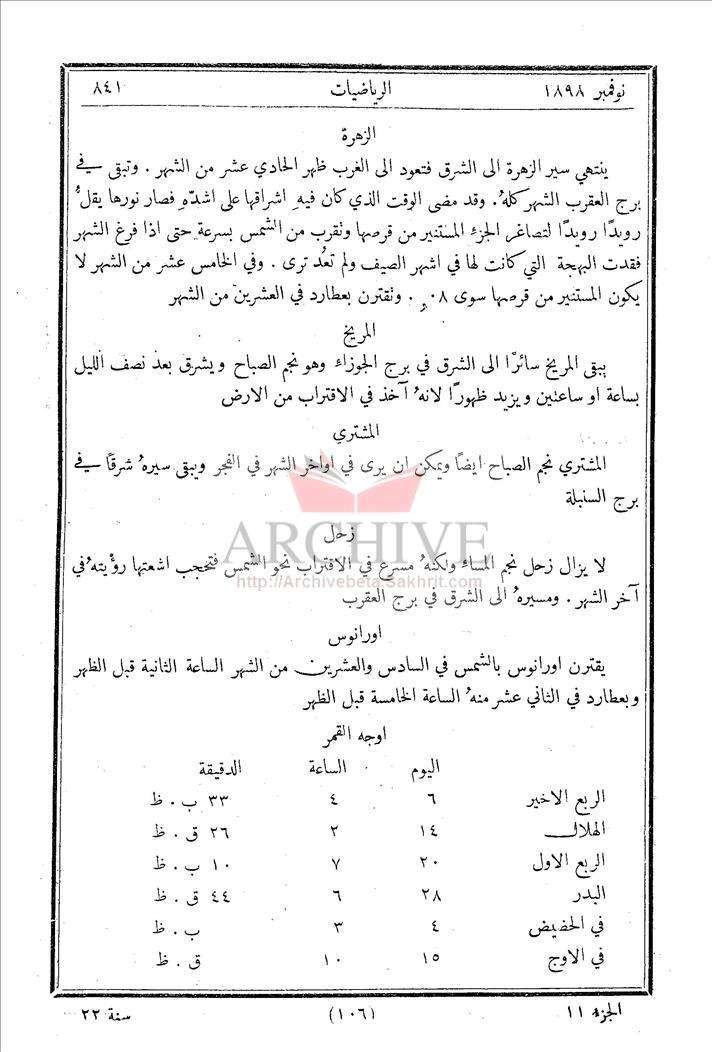 نوفمبر ١٨٩٨ الرياضيات ٨٤١
الزهرة
ينتهي سير الزهرة الى الشرق فتعود الى الغرب ظهر الحادي عشر من الشهر . وتبقى في
برج العقرب الشهر كلهُ. وقد مضى الوقت الذي كان فيهِ اشراقها على اشدّهِ فصار نورها يقلُّ
رويدًا رويدًا لتصاغر الجزء المستنير من قرصها وتقرب من الشمس بسرعة حتى اذا فرغ الشهر
فقدت البهجة التي كانت لها في اشهر الصيف ولم تعُد ترى . وفي الخامس عشر من الشهر لا
يكون المستنير من قرصها سوى ٠٨, . وتقترن بعطارد في العشرين من الشهر
المريخ
يبقى المريخ سائرًا الى الشرق في برج الجوزاء وهو نجم الصباح ويشرق بعد نصف الليل
بساعة او ساعتين ويزيد ظهورًا لانهُ آخذ في الاقتراب من الارض
المشتري
المشتري نجم الصباح ايضًا ويمكن ان يرى في اواخر الشهر في الفجر ويبقى سيرهُ شرقًا في
برج السنبلة
زحل
لا يزال زحل نجم المساء ولكنهُ مسرع في الاقتراب نحو الشمس فتحجب اشعتها رؤيتهُ في
آخر الشهر . ومسيرهُ الى الشرق في برج العقرب
ARCHIVE
http://Archivebeta.Sakhrit.com
اورانوس
يقترن اورانوس بالشمس في السادس والعشرين من الشهر الساعة الثانية قبل الظهر
وبعطارد في الثاني عشر منهُ الساعة الخامسة قبل الظهر
اوجه القمر
اليوم الساعة الدقيقة
الربع الاخير ٦ ٤ ٣٣ ب . ظ
الهلال ١٤ ٢ ٢٦ ق . ظ
الربع الاول ٢٠ ٧ ١٠ ب . ظ
البدر ٢٨ ٦ ٤٤ ق . ظ
في الحضيض ٤ ٣ ب . ظ
في الاوج ١٥ ١٠ ق . ظ
الجزء ١١ (١٠٦) سنة ٢٢